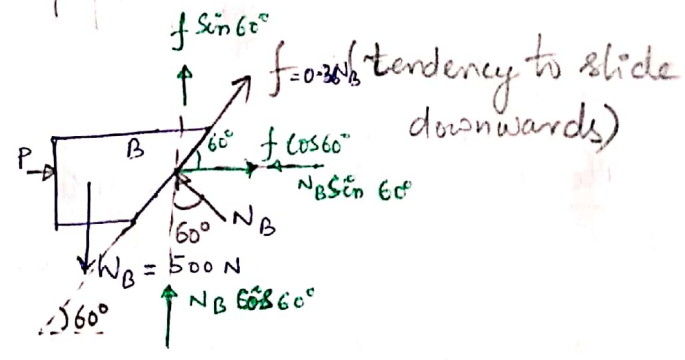 f Sin 60°
f = 0.36 N_B (tendency to slide
downwards)
P
B
60°
f Cos 60°
N_B Sin 60°
60°
N_B
W_B = 500 N
60°
N_B Cos 60°